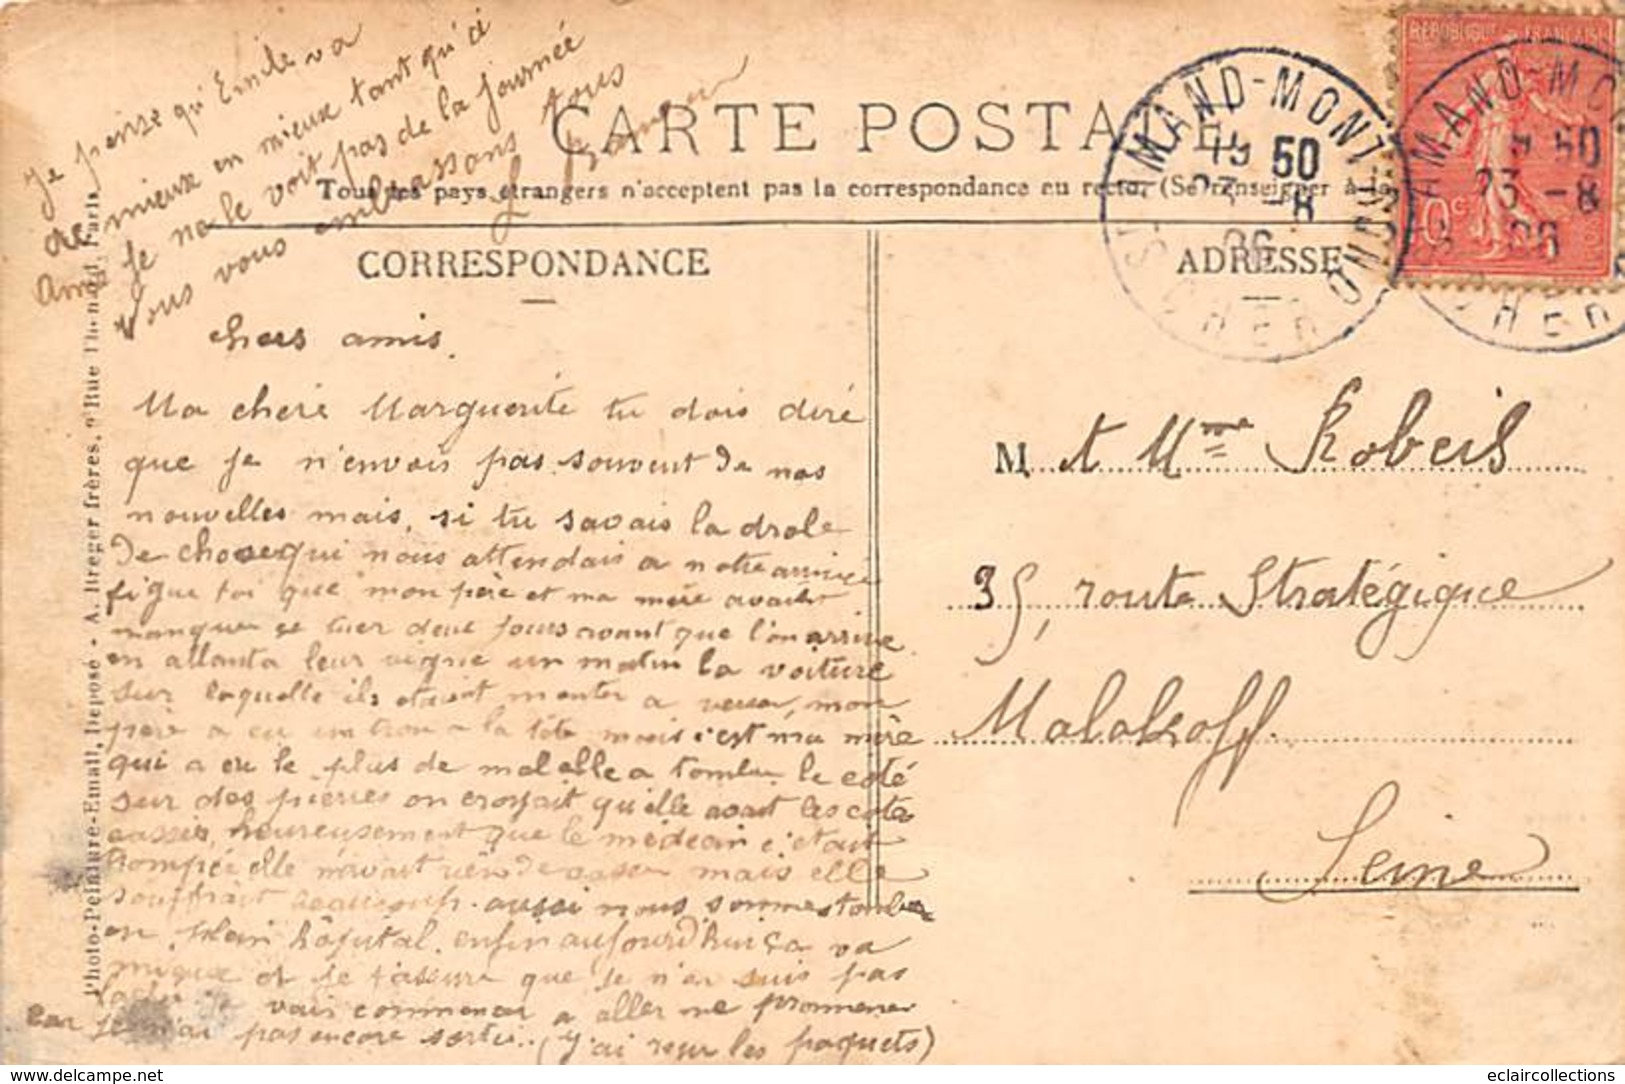 CARTE POSTALE
Tous les pays étrangers n'acceptent pas la correspondance au recto. (Se renseigner à la
CORRESPONDANCE
ADRESSE
RÉPUBLIQUE FRANÇAISE
ST-AMAND-MONTROND
19 50
23 -8
06
CHER
Chers amis.
Ma cheré Marguerite tu dois diré
que je n'envois pas souvent de nos
nouvelles mais, si tu savais la drole
de chose qui nous attendais a notre arrivée
figue toi que mon père et ma mère avait
manquer se tuer deux jours avant que l'on arrive
en allant a leur vigne un matin la voiture
sur laquelle ils etaient monter a verser, mon
père a eu un trou a la tête mais c'est ma mère
qui a eu le plus de mal elle a tomber le coté
sur des pierres on croyait qu'elle avait les cotes
cassées, heureusement que le medecin c'était
trompé elle n'avait rien de casser mais elle
souffrait beaucoup. aussi nous sommes tomber
en plein hôpital. enfin aujourd'hui ça va
mieux et je t'assure que je n'en suis pas
je vais commencer a aller me promener
car je n'ai pas encore sortie. (j'ai reçu les paquets)
Je pense qu'Emile va
de mieux en mieux tant qu'à
je ne le voit pas de la journée
Nous vous embrassons tous
M et Mme Robeis
35, route Stratégique
Malakoff
Seine
Photo-Peinture-Email, Déposé - A. Breger frères, 9 Rue Thénard, Paris
www.delcampe.net
eclaircollections